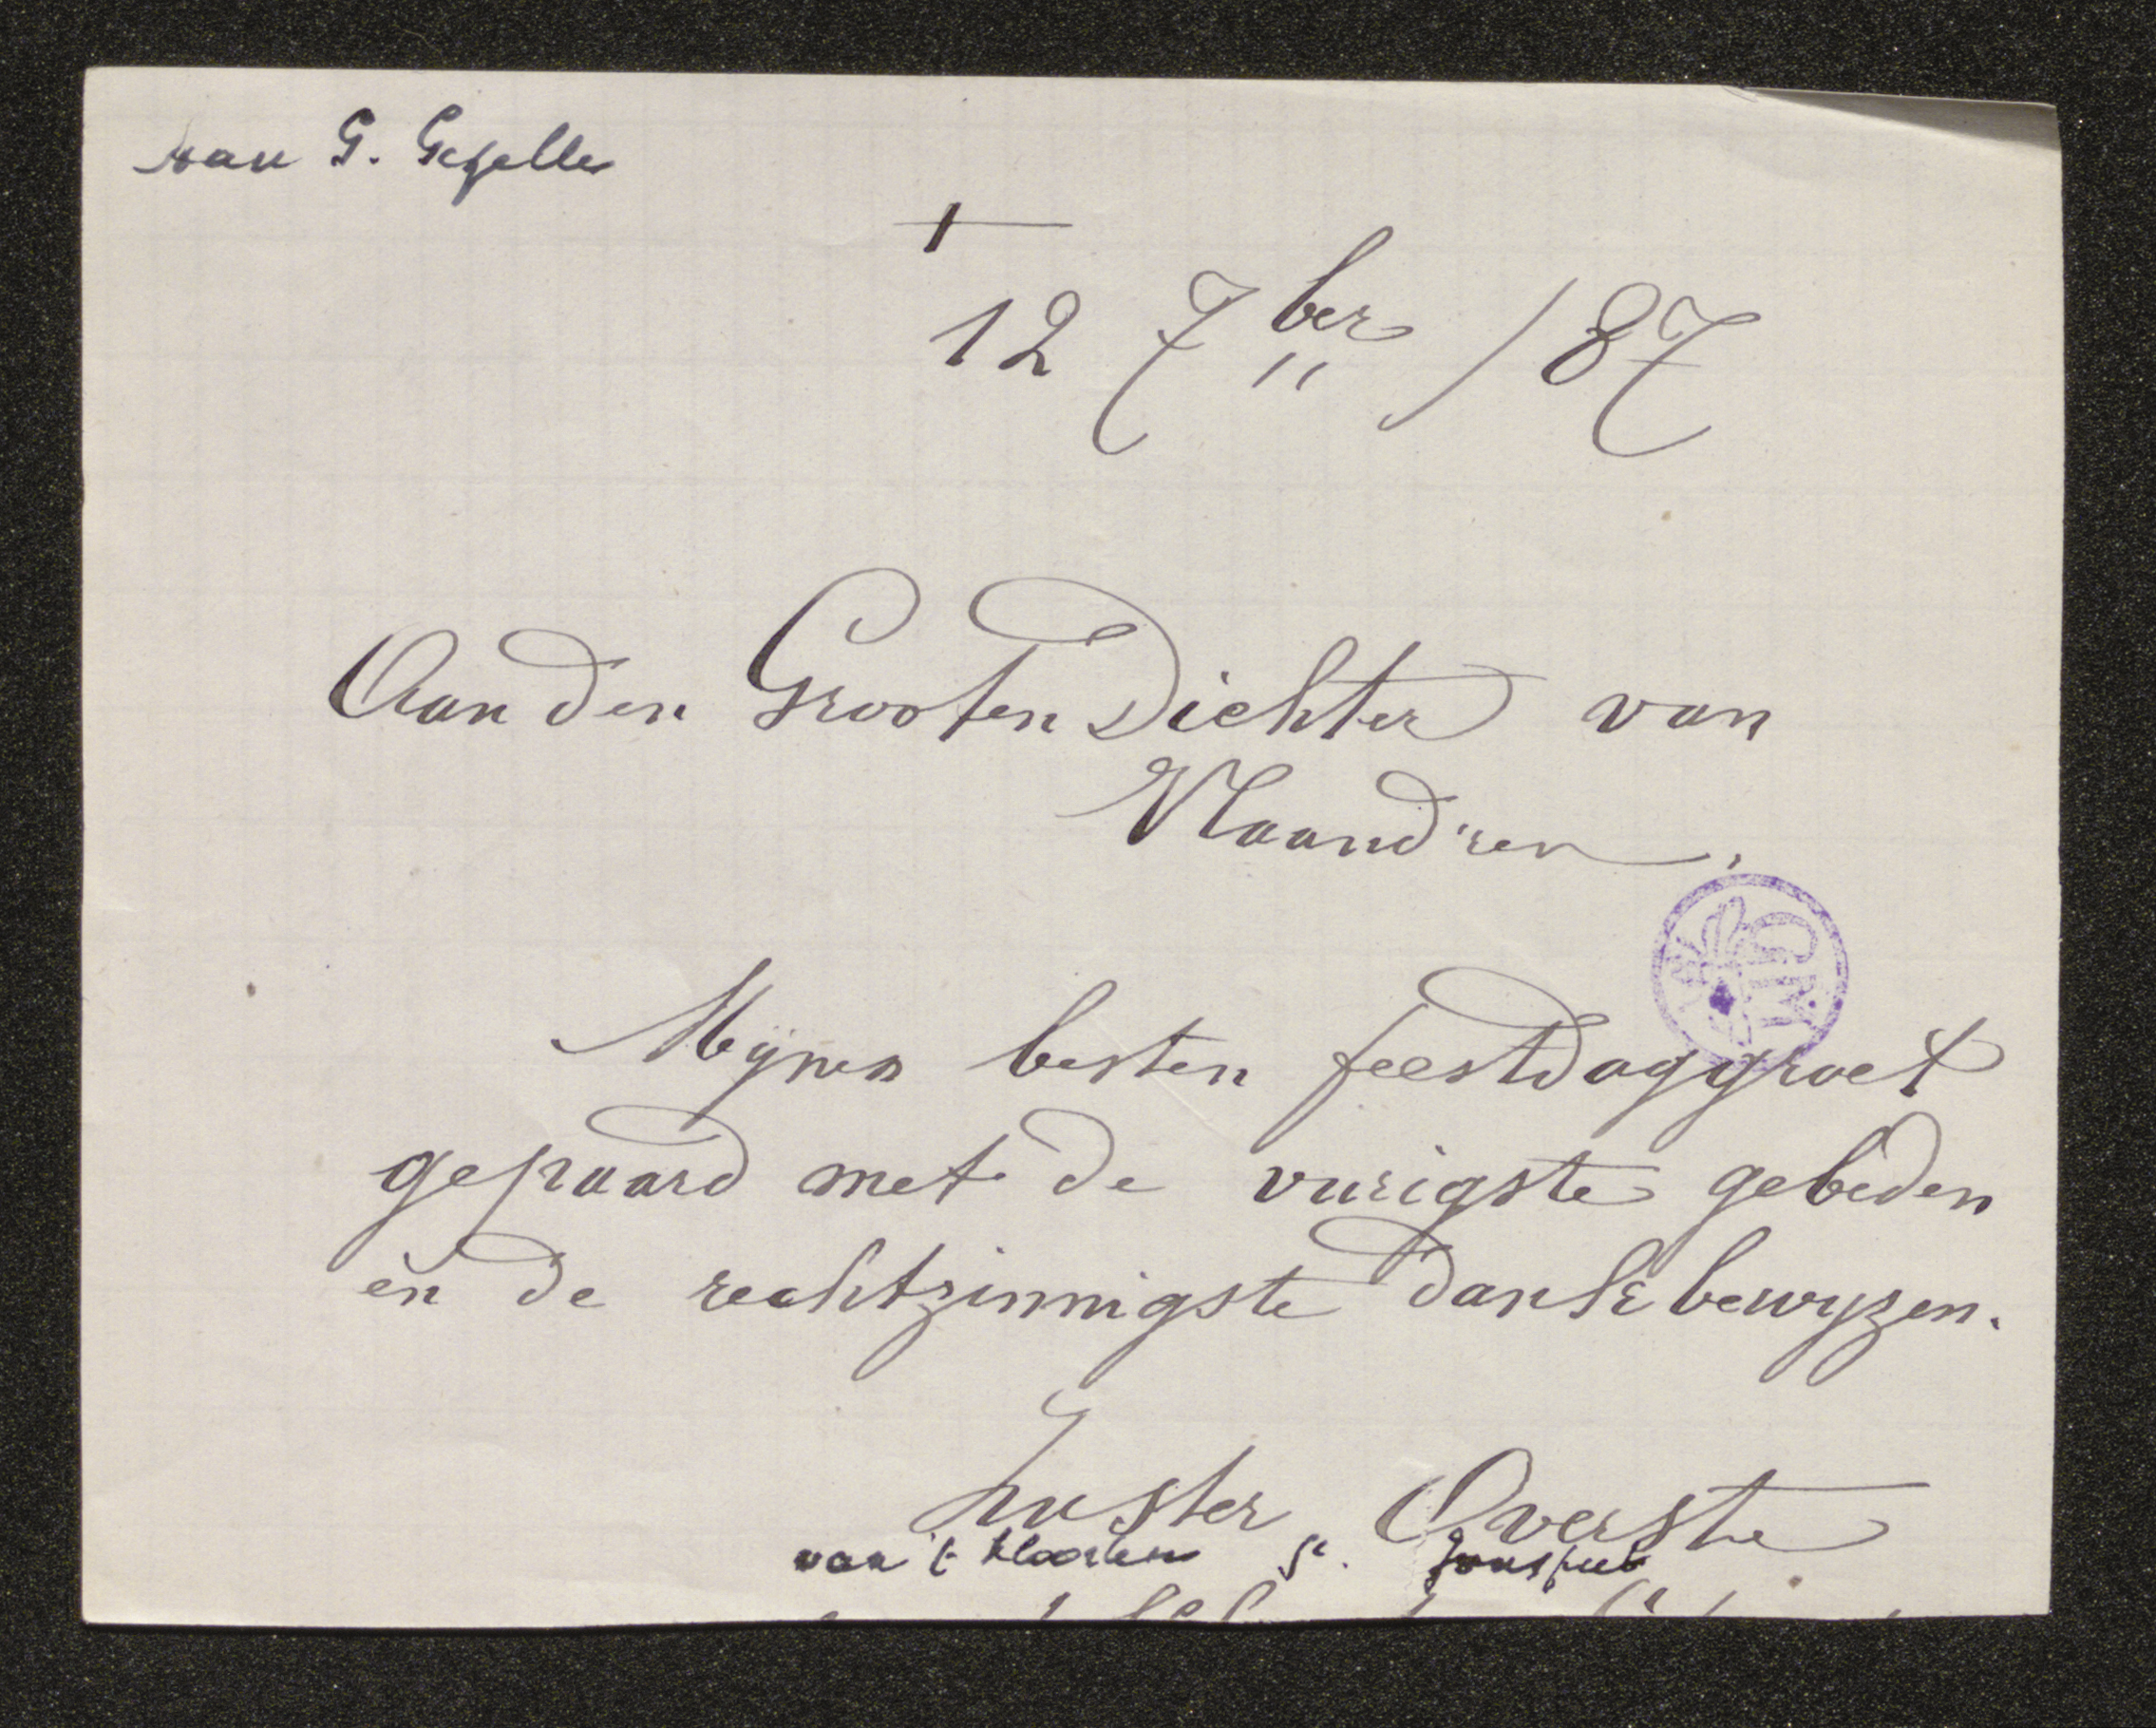 aan G. Gezelle
+
12 7ber /87
Aan den Grooten Dichter van
Vlaand'ren,
GM
Mijnen besten feestdaggroet
gepaard met de vurigste gebeden
en de rechtzinnigste dankbewyzen.
Zuster Overste
van 't klooster St. Jonsfeeb